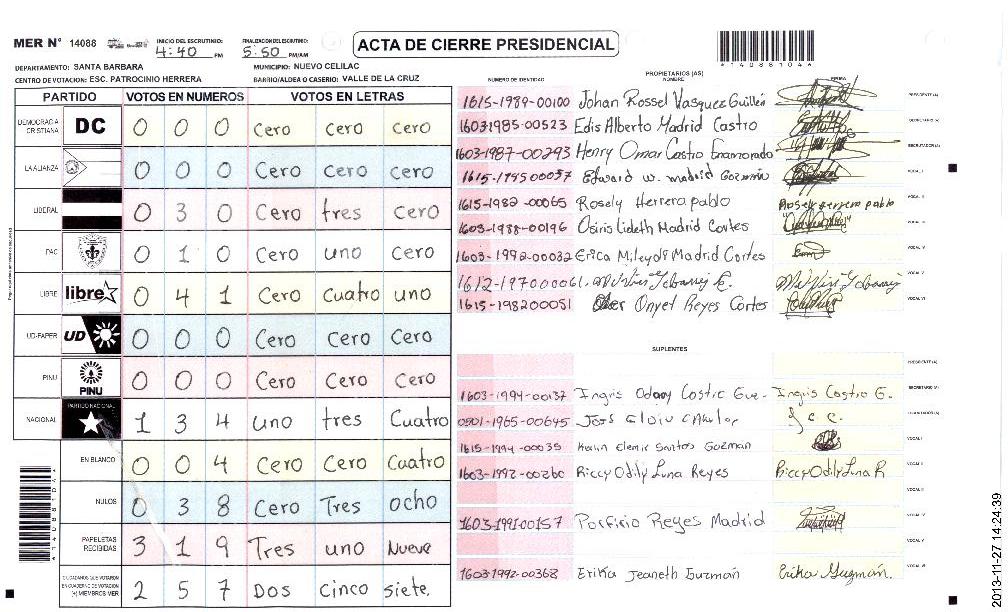 MER Nº 14088
INICIO DEL ESCRUTINIO: 4:40 PM
FINALIZACION DEL ESCRUTINIO: 5:50 PM/AM
ACTA DE CIERRE PRESIDENCIAL
*14088104*
DEPARTAMENTO: SANTA BARBARA
MUNICIPIO: NUEVO CELILAC
CENTRO DE VOTACION: ESC. PATROCINIO HERRERA
BARRIO/ALDEA O CASERIO: VALLE DE LA CRUZ
PARTIDO VOTOS EN NUMEROS VOTOS EN LETRAS
DEMOCRACIA CRISTIANA DC 0 0 0 Cero cero cero
LA ALIANZA 0 0 0 Cero Cero cero
LIBERAL 0 3 0 Cero tres cero
PAC 0 1 0 Cero uno cero
LIBRE libre 0 4 1 Cero Cuatro uno
UD-FAPER UD 0 0 0 Cero Cero Cero
PINU PINU 0 0 0 Cero Cero Cero
NACIONAL PARTIDO NACIONAL 1 3 4 uno tres Cuatro
EN BLANCO 0 0 4 Cero Cero Cuatro
NULOS 0 3 8 Cero Tres ocho
PAPELETAS RECIBIDAS 3 1 9 Tres uno Nueve
CIUDADANOS QUE VOTARON EN CUADERNO DE VOTACION (+) MIEMBROS MER 2 5 7 Dos cinco siete.
PROPIETARIOS (AS)
NUMERO DE IDENTIDAD NOMBRE FIRMA
1615-1989-00100 Johan Rossel Vasquez Guillén PRESIDENTE (A)
1603-1985-00523 Edis Alberto Madrid Castro SECRETARIO (A)
1603-1987-00293 Henry Omar Castro Enamorado ESCRUTADOR (A)
1615-1985 00037 Edward w. madrid Guzmán VOCAL I
1615-1982-00065 Rosely Herrera pablo Rosely Herrera pablo VOCAL II
1603-1988-00196 Osiris Lideth Madrid Cortes VOCAL III
1603-1992-00032 Erica Mileydi Madrid Cortes VOCAL IV
1612-197000061 VOCAL V
1615-198200051 Onyel Reyes Cortes VOCAL VI
SUPLENTES
PRESIDENTE (A)
1603-1994-00137 Ingris Odany Castro Gue- Ingris Castro G. SECRETARIO (A)
0501-1965-00645 ESCRUTADOR (A)
1615-1994-00035 Elemir Santos Guzman VOCAL I
1603-1992-00260 Riccy Odily Luna Reyes Riccy Odily Luna R VOCAL II
VOCAL III
1603-1991-00157 Porfirio Reyes Madrid VOCAL IV
VOCAL V
1603-1992-00368 Erika Jeaneth Guzmán Erika Guzmán. VOCAL VI
*14088104*
2013-11-27 14:24:39